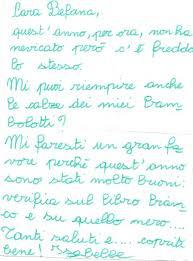 Cara Befana,
quest'anno, per ora, non ha
nevicato però c'è freddo
lo stesso.
Mi puoi riempire anche
le calze dei miei Bam-
bolotti?
Mi faresti un gran fa-
vore perchè quest'anno
sono stati molto buoni:
verifica sul libro Bian-
co e su quello nero....
Tanti saluti e.... copriti
bene! Isabelle